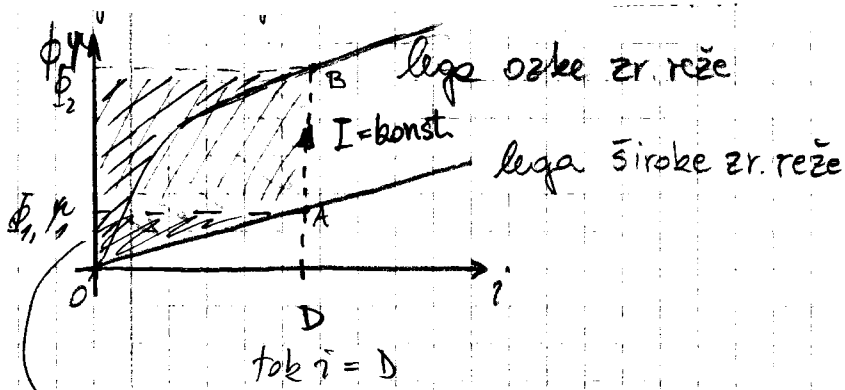 ϕ, ψ
Φ₂
B
lega ozke zr. reže
I=konst.
lega široke zr. reže
Φ₁, ψ₁
A
O
i
D
tok i = D